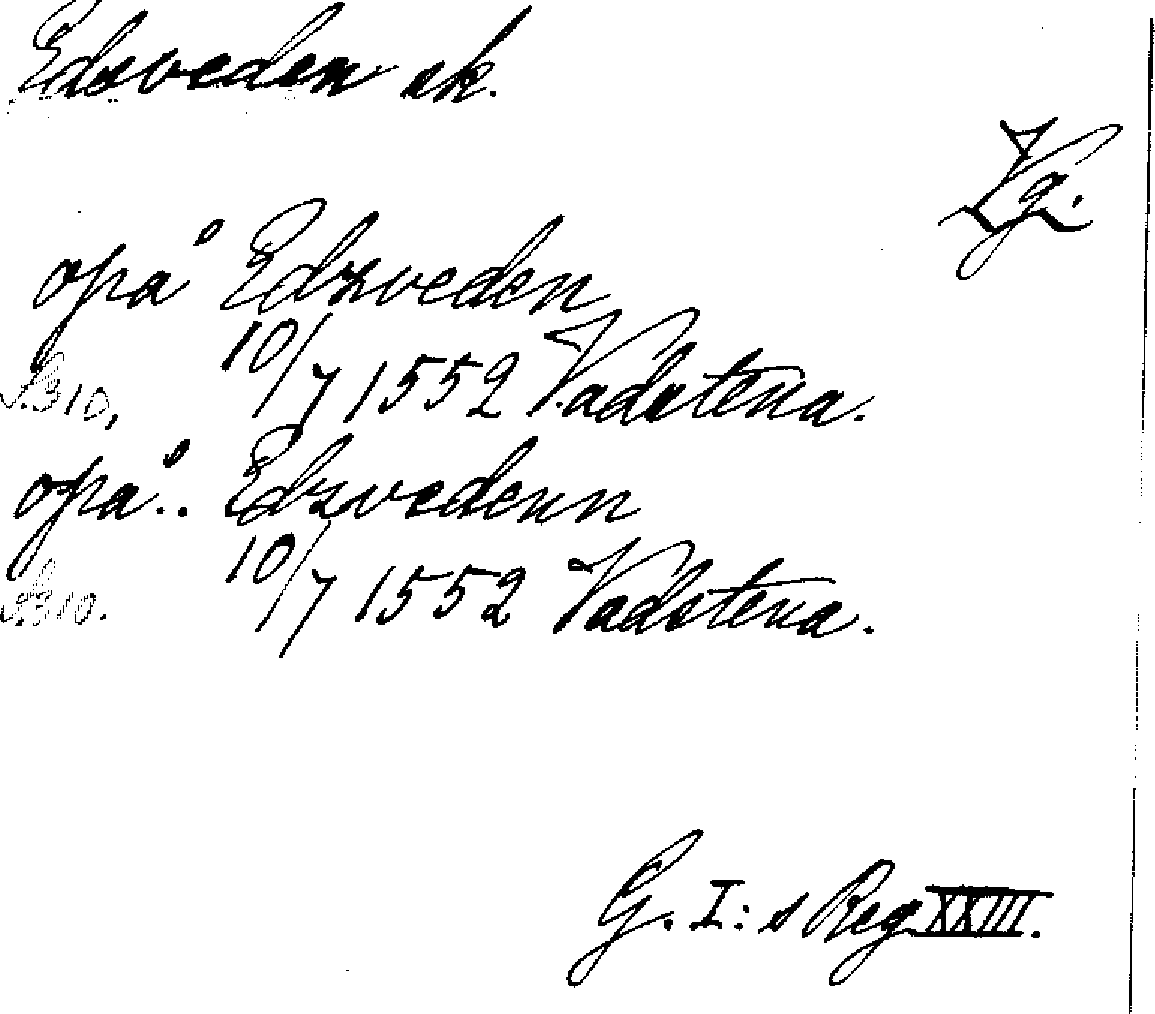 Edsveden sk.
Vg.
opå Edzveden
10/7 1552 Vadstena.
S. 310,
opå.. Edzvedenn
10/7 1552 Vadstena.
S. 310.
G. I:s Reg XXIII.